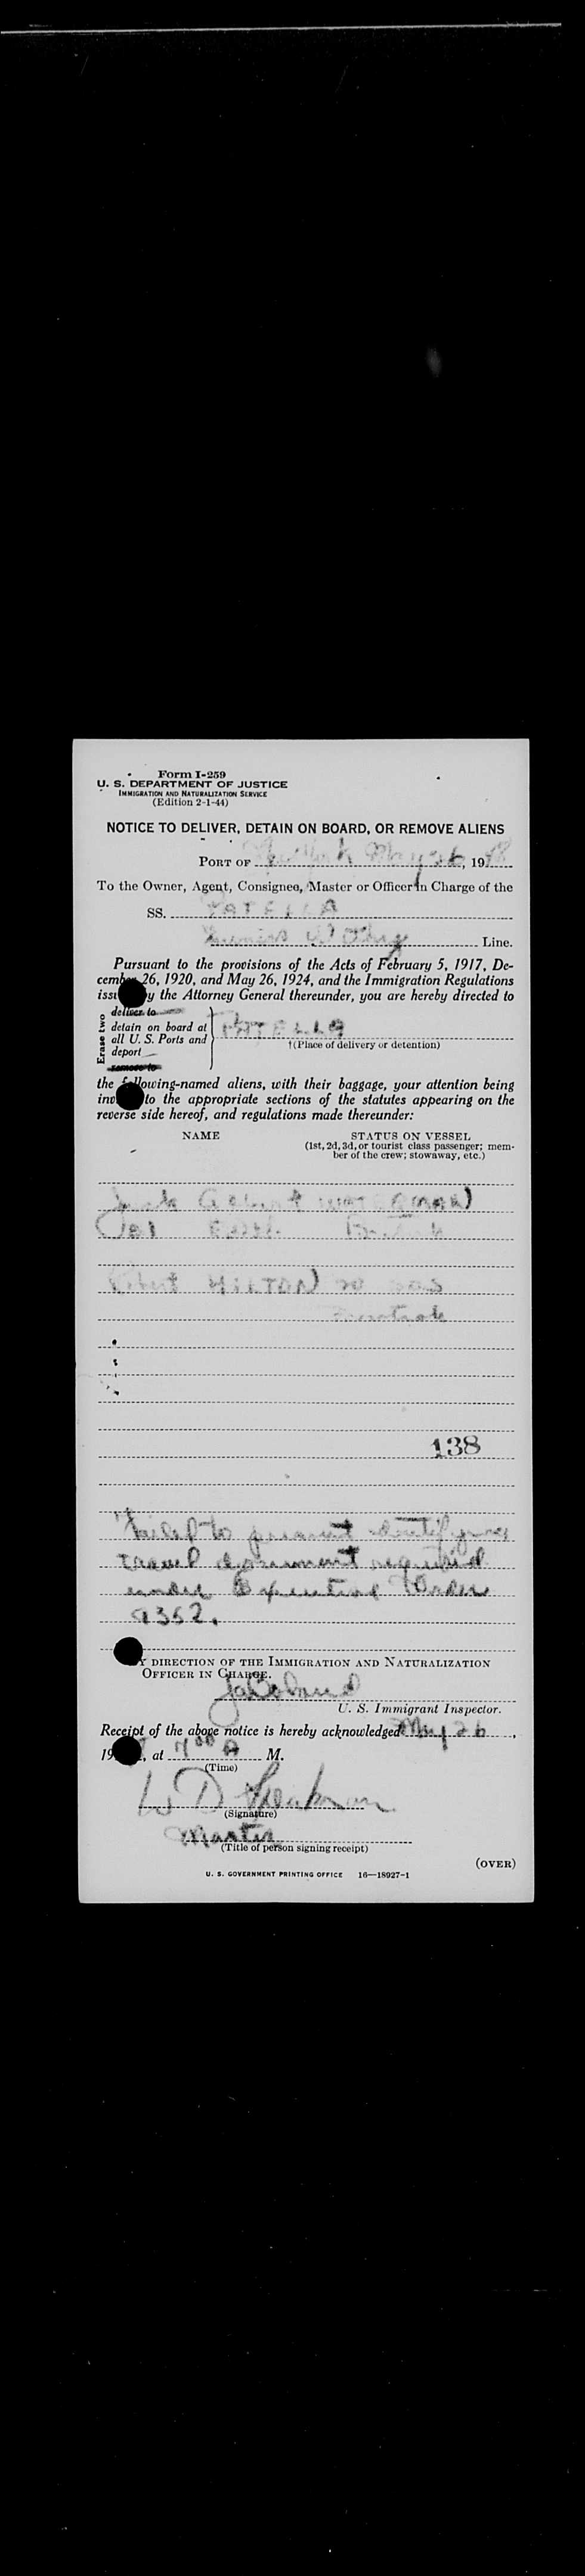 Form I-259
U. S. DEPARTMENT OF JUSTICE
IMMIGRATION AND NATURALIZATION SERVICE
(Edition 2-1-44)
NOTICE TO DELIVER, DETAIN ON BOARD, OR REMOVE ALIENS
PORT OF May 26, 19
To the Owner, Agent, Consignee, Master or Officer in Charge of the
SS. PATELLA
Line.
Pursuant to the provisions of the Acts of February 5, 1917, De-
cember 26, 1920, and May 26, 1924, and the Immigration Regulations
iss y the Attorney General thereunder, you are hereby directed to
Erase two
deliver to
detain on board at
all U. S. Ports and
deport
remove to
PATELLA
†(Place of delivery or detention)
the following-named aliens, with their baggage, your attention being
inv to the appropriate sections of the statutes appearing on the
reverse side hereof, and regulations made thereunder:
NAME
STATUS ON VESSEL
(1st, 2d, 3d, or tourist class passenger; mem-
ber of the crew; stowaway, etc.)
Jack WATERMAN
British
HILTON
138
Failed to present
travel document required
under Executive Order
9352.
Y DIRECTION OF THE IMMIGRATION AND NATURALIZATION
OFFICER IN CHARGE.
U. S. Immigrant Inspector.
Receipt of the above notice is hereby acknowledged May 26,
19 , at 7 00 A M.
(Time)
W D
(Signature)
Master
(Title of person signing receipt)
(OVER)
U. S. GOVERNMENT PRINTING OFFICE 16—18927-1